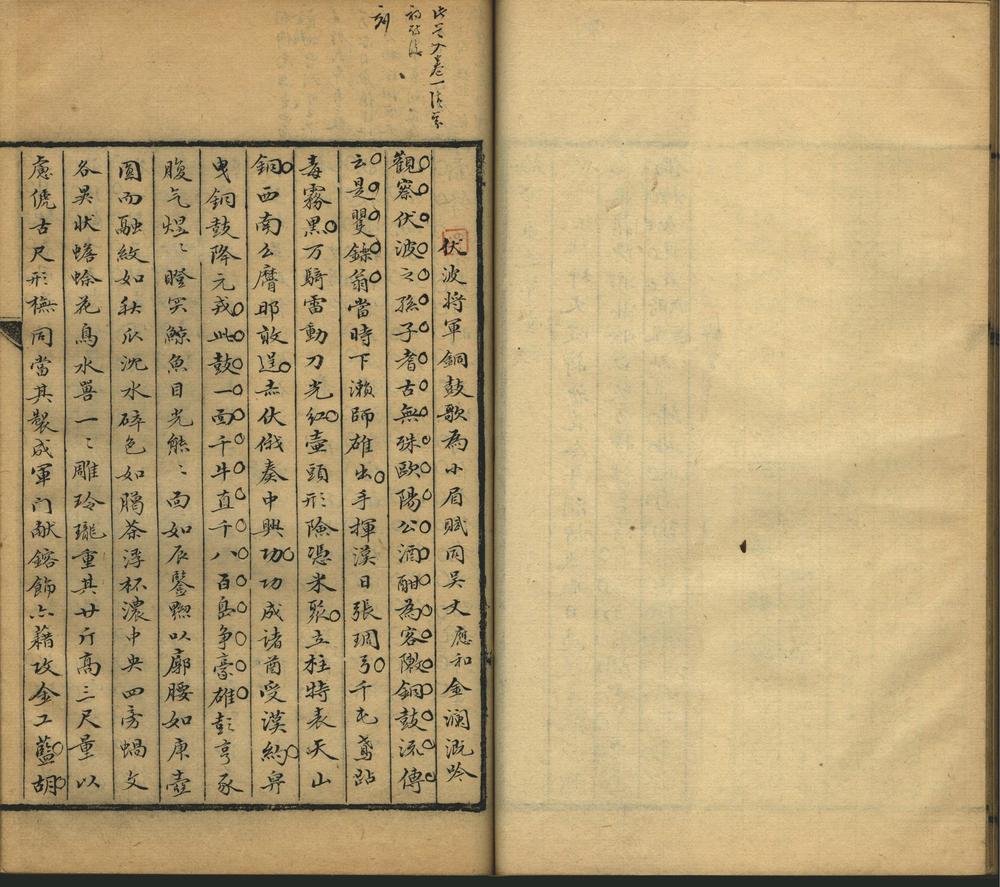 此是入卷一
刻
伏波將軍銅鼓歌為小眉賦同吳丈應和金瀾溉吟
觀察伏波之孫子耆古無殊歐陽公酒酣為客陳銅鼓流傳
云是矍鑠翁當時下瀨師雄出手揮漢日張琱弓千屯鳶跕
毒霧黑万騎雷動刀光紅壺頭形險憑米聚立柱特表天山
銅西南么麿耶敢逞赤伏俄奏中興功功成諸酋受漢約舁
曳銅鼓降元戎此鼓一面千牛直千八百島爭豪雄彭亨豕
腹气煜〻瞪突鯨魚目光熊〻面如辰鑒黝以廓腰如康壺
圓而融紋如秋瓜沈水碎色如鵑茶浮杯濃中央四旁蝸文
各異狀蟾蜍花鳥水獸一〻雕玲瓏重其廿斤高三尺量以
慮俿古尺形橅同當其製成軍門献鎔飾亦藉攻金工藍胡